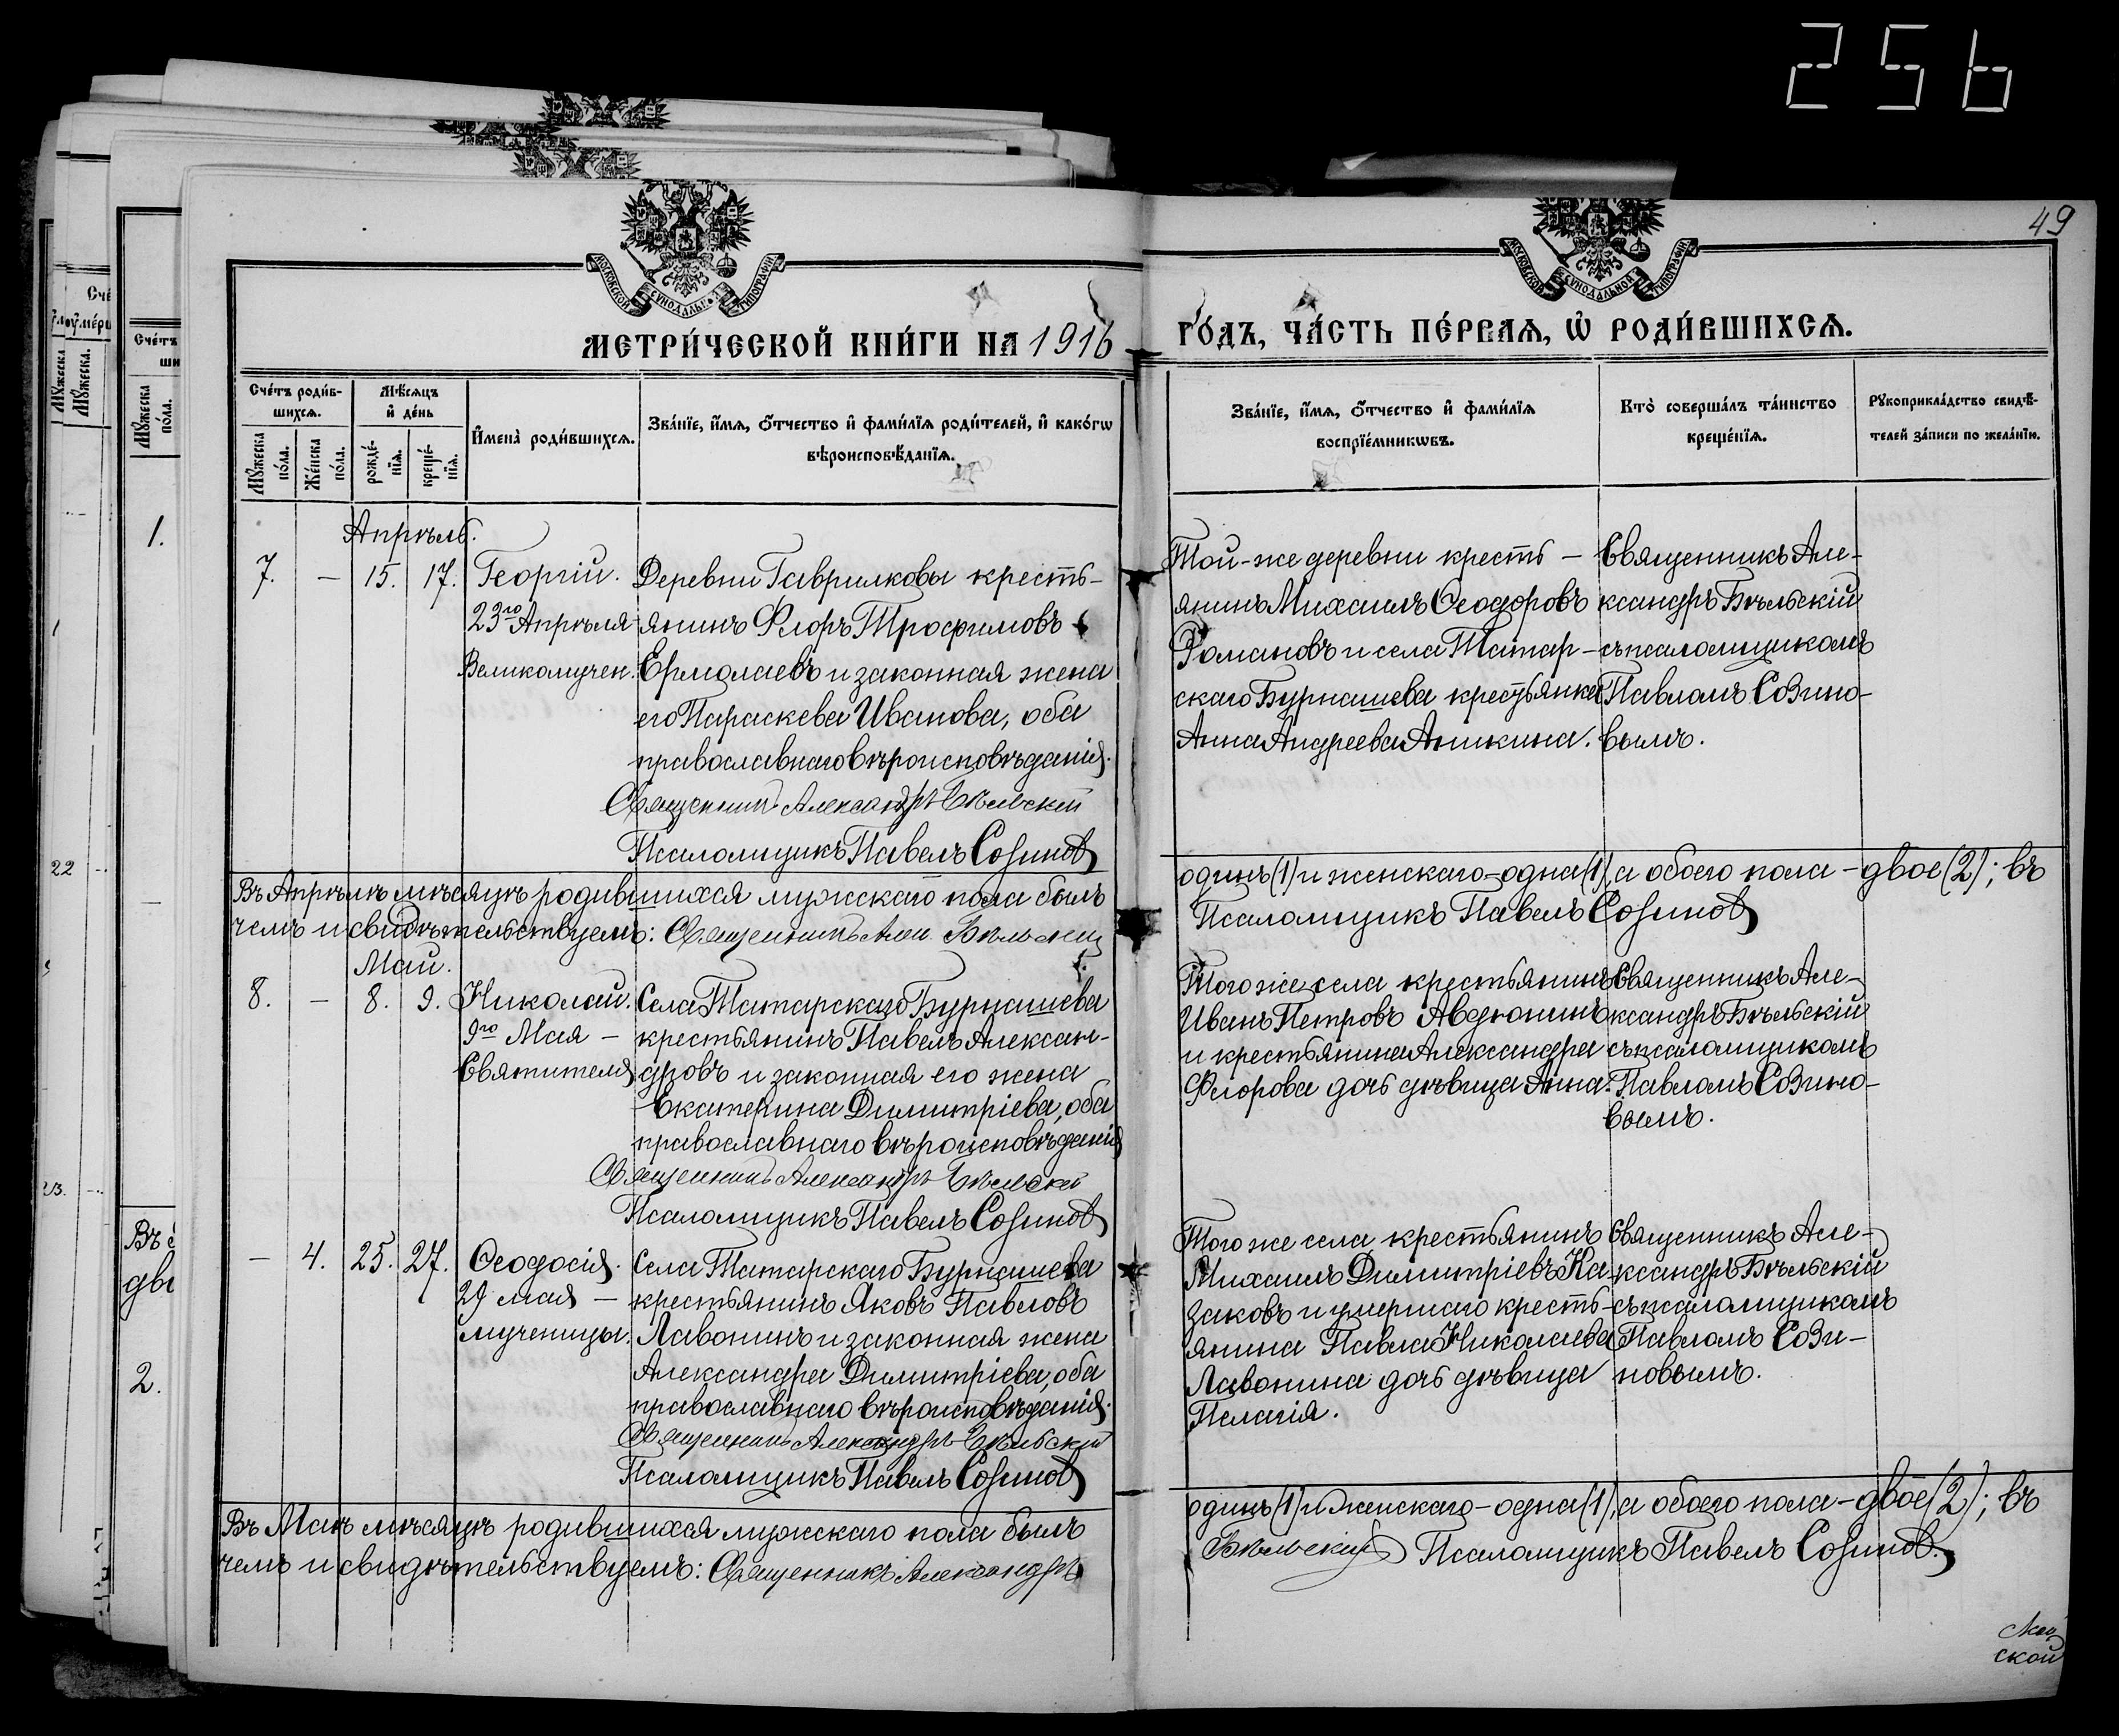 256
49
МОСКОВСКОЙ СѴНОДАЛЬНОЙ ТИПОГРАФІИ
МОСКОВСКОЙ СѴНОДАЛЬНОЙ ТИПОГРАФІИ
МЕТРИ́ЧЕСКОЙ КНИ́ГИ НА 1916
ГО́ДЪ, ЧА́СТЬ ПЕ́РВАѦ, Ѡ҆ РОДИ́ВШИХСѦ.
Сче́тъ роди́в-
шихсѧ.
Мѣ́сѧцъ
и҆ де́нь
Мꙋ́жеска
по́ла.
Же́нска
по́ла.
рожде́-
нїѧ.
креще́-
нїѧ.
И҆мена̀ роди́вшихсѧ.
Зва́нїе, и҆́мѧ, ѻ҆́тчество и҆ фами́лїѧ роди́телей, и҆ како́гѡ
вѣроисповѣ́данїѧ.
Зва́нїе, и҆́мѧ, ѻ҆́тчество и҆ фами́лїѧ
воспрїе́мникѡвъ.
Кто̀ соверша́лъ та́инство
креще́нїѧ.
Рꙋкоприкла́дство свидѣ́-
телей за́писи по жела́нїю.
Апрѣль.
7. — 15. 17. Георгій.
23го Апрѣля
Великомучен.
Деревни Гаврилковы кресть-
янинъ Флоръ Трофимовъ
Ермолаевъ и законная жена
его Параскева Иванова, оба
православнаго вѣроисповѣданія.
Священникъ Александръ Бѣльскій
Псаломщикъ Павелъ Созинов
Той-же деревни кресть-
янинъ Михаилъ Ѳеодоровъ
Романовъ и села Татар-
скаго Бурнашева крестьянка
Анна Андреева Аникина.
Священникъ Але-
ксандръ Бѣльскій
съ псаломщикомъ
Павломъ Созино-
вымъ.
Въ Апрѣлѣ мѣсяцѣ родившихся мужскаго пола былъ
одинъ (1) и женскаго-одна (1), а обоего пола-двое (2); въ
чемъ и свидѣтельствуемъ: Священникъ Алек. Бѣльскій
Псаломщикъ Павелъ Созинов
Май.
8. — 8. 9. Николай.
9го Мая —
Святителя
Села Татарскаго Бурнашева
крестьянинъ Павелъ Алексан-
дровъ и законная его жена
Екатерина Димитріева, оба
православнаго вѣроисповѣданія
Священникъ Александръ Бѣльскій
Псаломщикъ Павелъ Созинов
Того же села крестьянинъ
Иванъ Петровъ Авдюнинъ
и крестьянина Александра
Флорова дочь дѣвица Анна.
Священникъ Але-
ксандръ Бѣльскій
съ псаломщикомъ
Павломъ Созино-
вымъ.
— 4. 25. 27. Ѳеодосія.
29 мая —
мученицы.
Села Татарскаго Бурнашева
крестьянинъ Яковъ Павловъ
Лавонинъ и законная жена
Александра Димитріева, оба
православнаго вѣроисповѣданія.
Священникъ Александръ Бѣльскій
Псаломщикъ Павелъ Созинов
Того же села крестьянинъ
Михаилъ Димитріевъ Ка-
заковъ и умершаго кресть-
янина Павла Николаева
Лавонина дочь дѣвица
Пелагія.
Священникъ Але-
ксандръ Бѣльскій
съ псаломщикомъ
Павломъ Сози-
новымъ.
Въ Маѣ мѣсяцѣ родившихся мужскаго пола былъ
одинъ (1) и женскаго-одна (1), а обоего пола-двое (2); въ
чемъ и свидѣтельствуемъ: Священникъ Александръ
Бѣльскій Псаломщикъ Павелъ Созинов.
ской
Сче́тъ
ши
Мꙋ́жеска
по́ла.
1.
22
2.